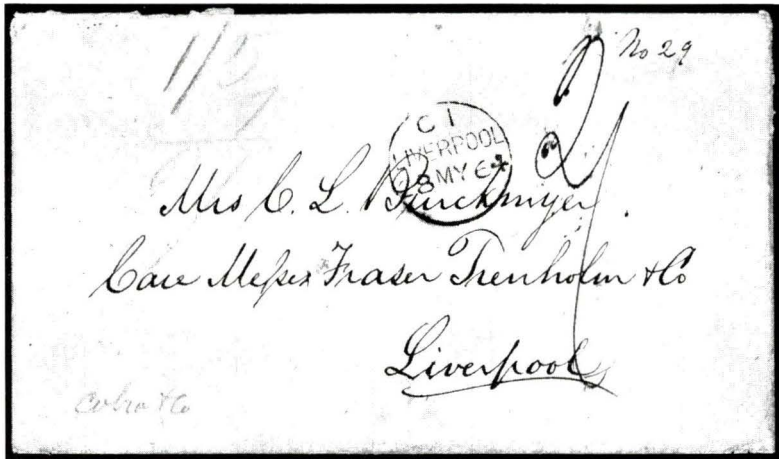 No 29
C 1
LIVERPOOL
8 MY 64
2/
Mrs C. L. Burckmyer.
Care Messrs Fraser Trenholm & Co
Liverpool
& Co